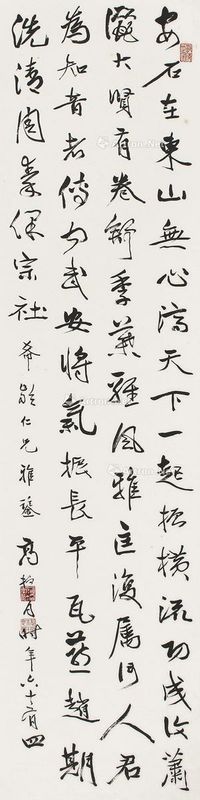 安石在東山無心濟天下一起振橫流功成復蕭
灑大賢有卷舒季葉輕風雅匡復屬何人君
為知音者傳聞武安將氣振長平瓦燕趙期
洗清周秦保宗社 希齡仁兄雅鑒 高振霄時年六十有四